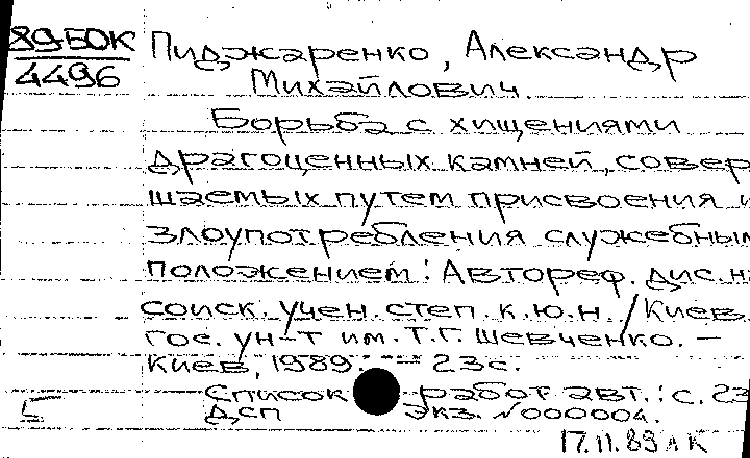 89-БОК
4496
Пиджаренко, Александр
Михайлович.
Борьба с хищениями
драгоценных камней, совер
шаемых путем присвоения и
злоупотребления служебным
положением: Автореф. дис. на
соиск. учен. степ. к.ю.н. / Киев.
гос. ун-т им. Т.Г. Шевченко. —
Киев, 1989. — 23 с.
Список работ авт.: с. 23
ДСП экз. N 000004.
17.11.89 л К